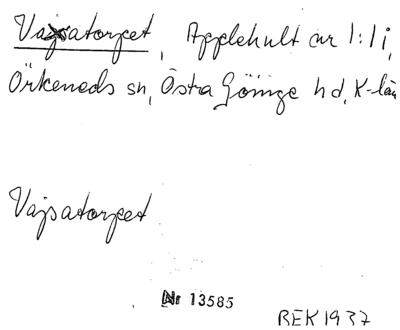 Vajsatorpet, Applehult nr 1:1 i,
Örkeneds sn, Östra Göinge hd, K-län
Vajsatorpet
Nr 13585
BEK 1937